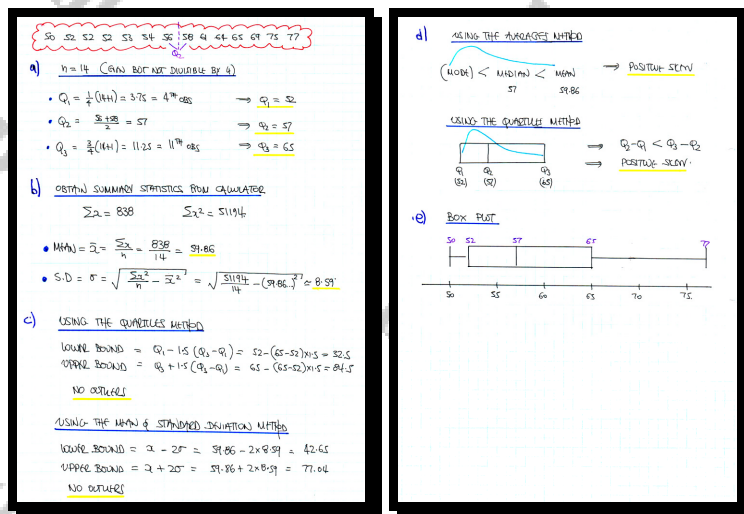 50 52 52 52 53 54 56 58 61 64 65 69 75 77
Q₂
a) n=14 (EVEN BUT NOT DIVISIBLE BY 4)
• Q₁ = 1/4(14+1) = 3.75 = 4TH OBS ⇒ Q₁ = 52
• Q₂ = (56+58)/2 = 57 ⇒ Q₂ = 57
• Q₃ = 3/4(14+1) = 11.25 = 11TH OBS ⇒ Q₃ = 65
b) OBTAIN SUMMARY STATISTICS FROM CALCULATOR
Σx = 838 Σx² = 51194
• MEAN = x̄ = Σx/n = 838/14 = 59.86
• S.D = σ = √(Σx²/n − x̄²) = √(51194/14 − (59.86...)²) ≈ 8.59
c) USING THE QUARTILES METHOD
LOWER BOUND = Q₁ − 1.5(Q₃−Q₁) = 52−(65−52)×1.5 = 32.5
UPPER BOUND = Q₃ + 1.5(Q₃−Q₁) = 65 − (65−52)×1.5 = 84.5
NO OUTLIERS
USING THE MEAN & STANDARD DEVIATION METHOD
LOWER BOUND = x − 2σ = 59.86 − 2×8.59 = 42.65
UPPER BOUND = x + 2σ = 59.86 + 2×8.59 = 77.04
NO OUTLIERS
d) USING THE AVERAGES METHOD
(MODE) < MEDIAN < MEAN ⇒ POSITIVE SKEW
57 59.86
USING THE QUARTILES METHOD
⇒ Q₂−Q₁ < Q₃−Q₂
⇒ POSITIVE SKEW.
Q₁ Q₂ Q₃
(52) (57) (65)
e) BOX PLOT
50 52 57 65 77
50 55 60 65 70 75